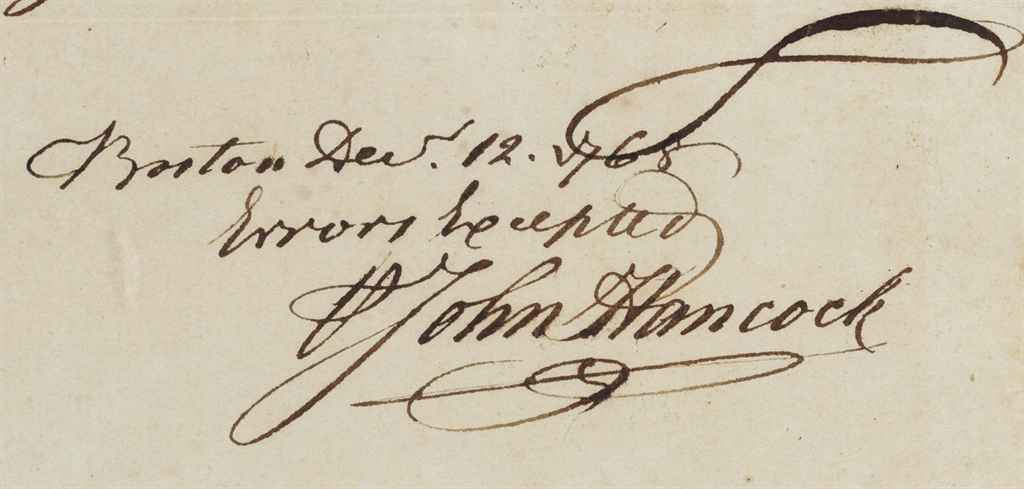 Boston Decʳ. 12. 1768
Errors Excepted
⅌ John Hancock